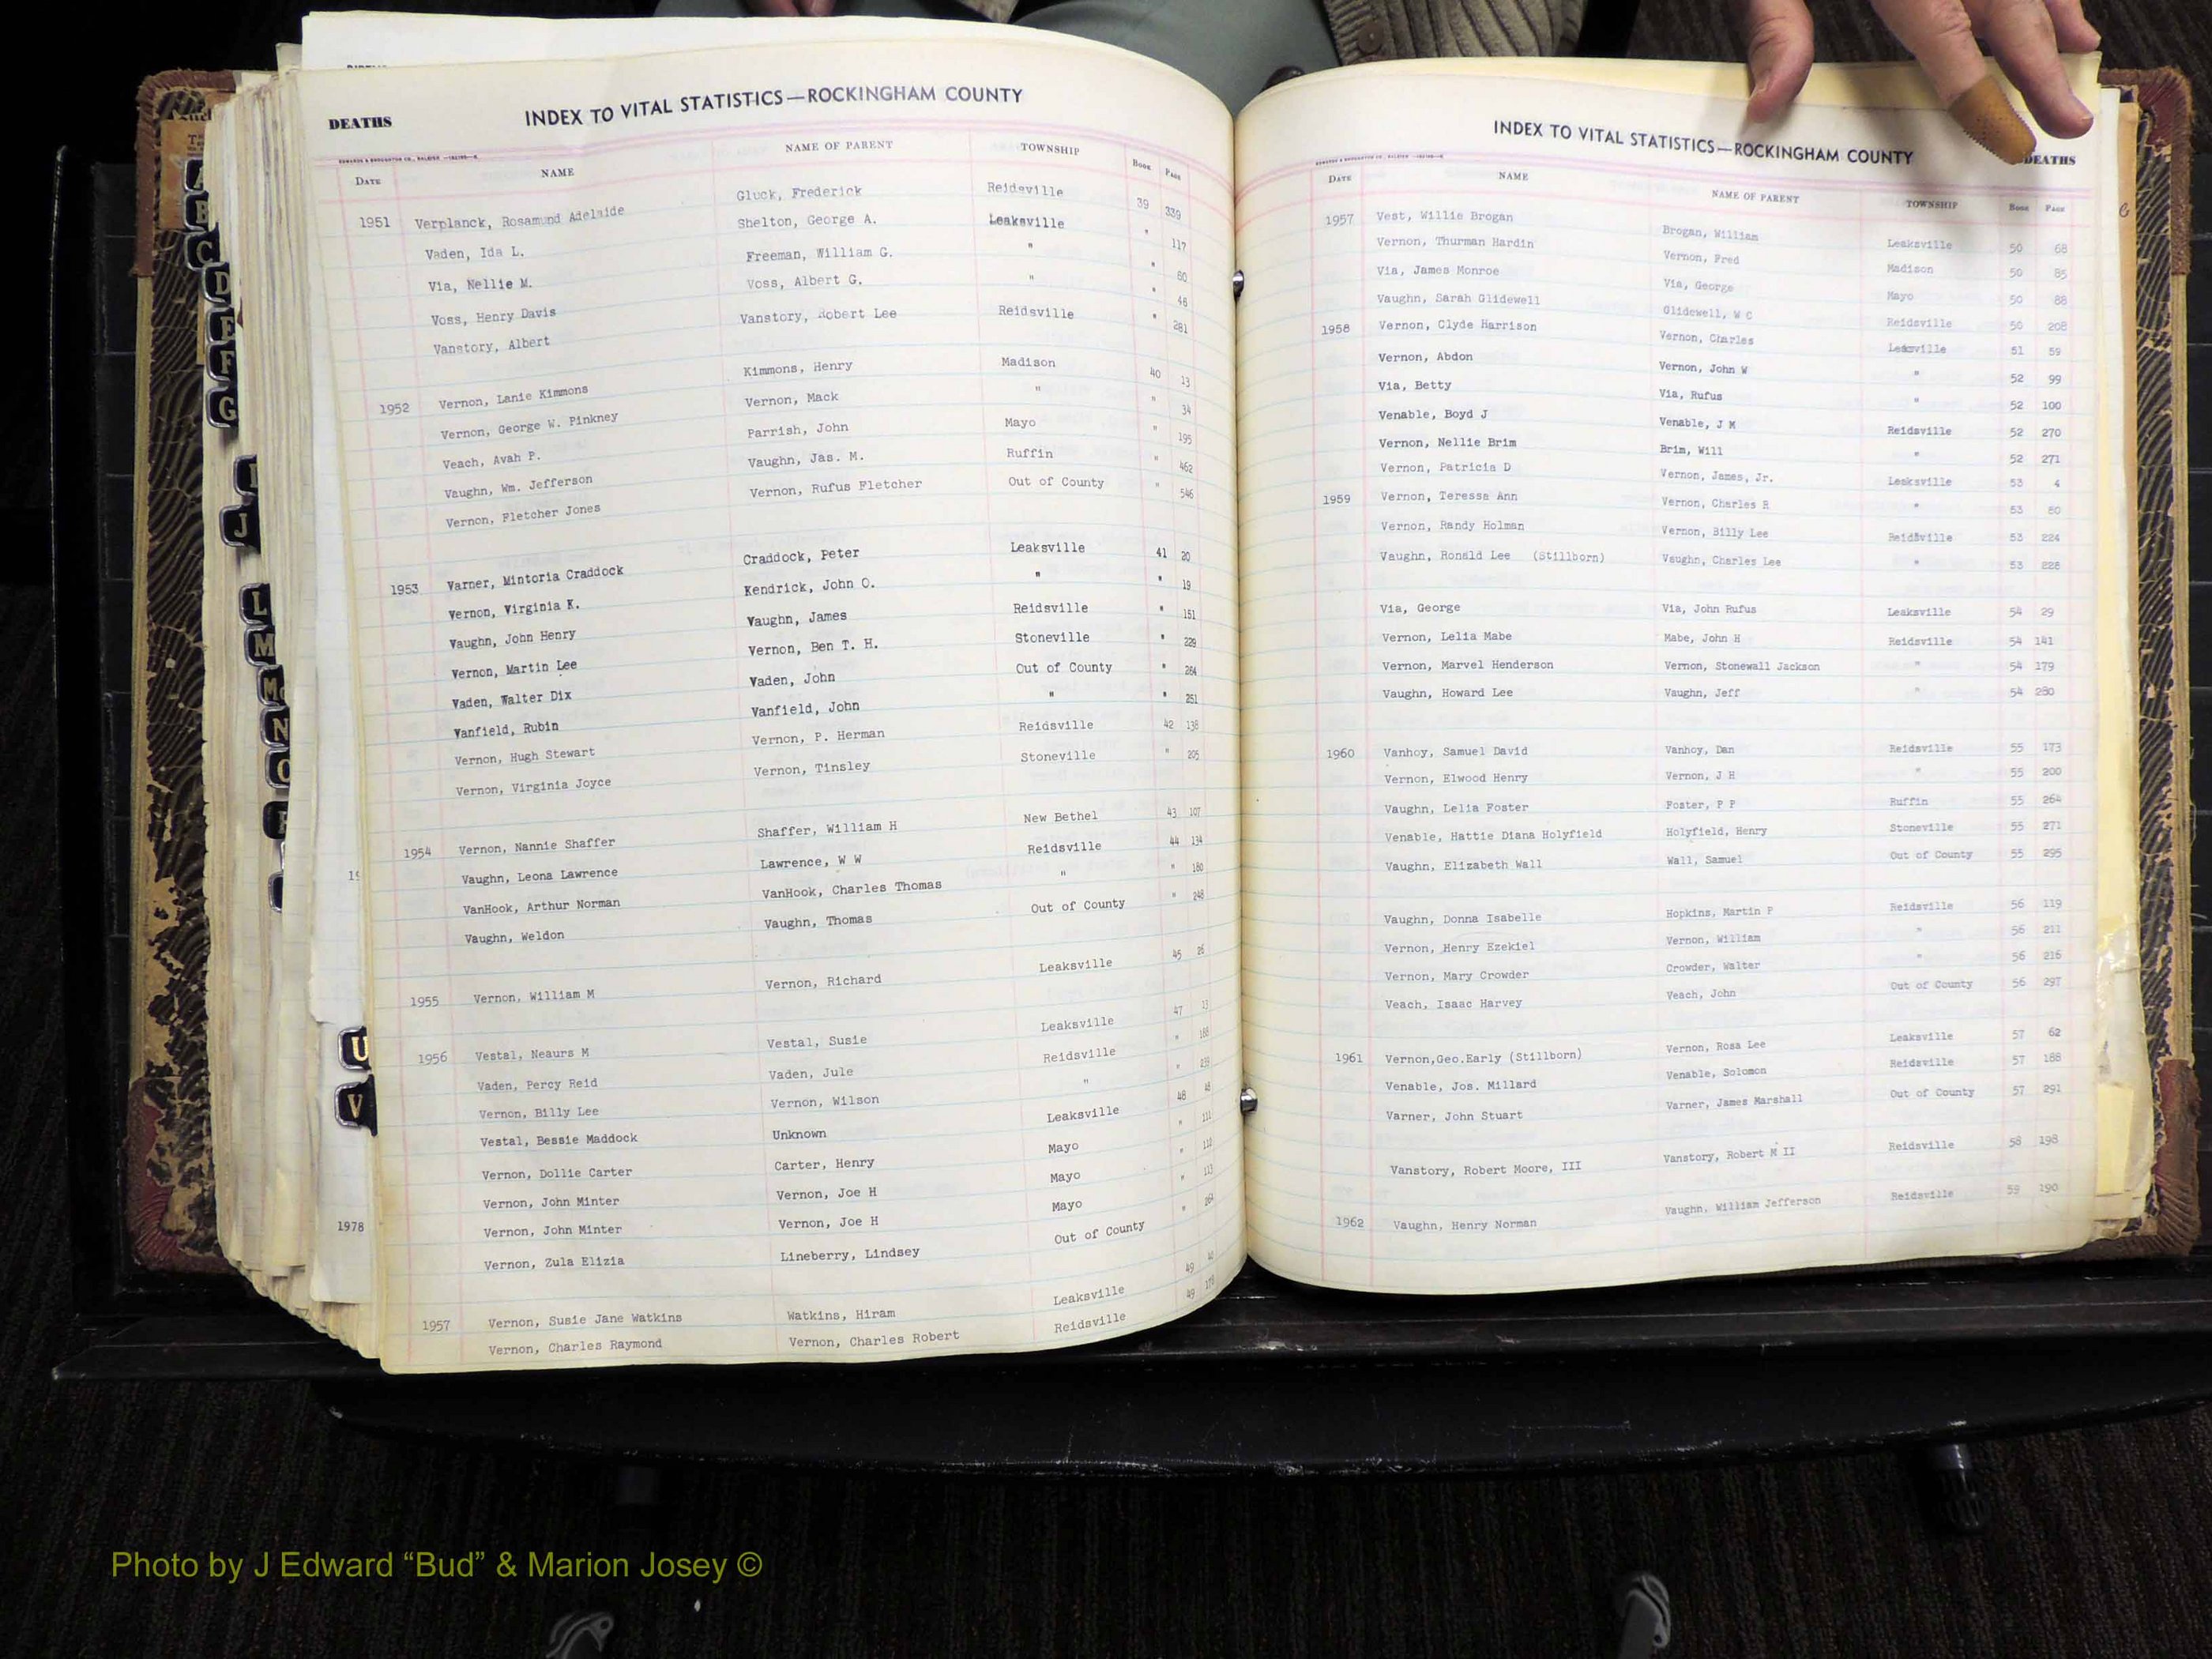 DEATHS INDEX TO VITAL STATISTICS—ROCKINGHAM COUNTY
DATE NAME NAME OF PARENT TOWNSHIP BOOK PAGE
1951 Verplanck, Rosamund Adelaide Gluck, Frederick Reidsville 39 339
Vaden, Ida L. Shelton, George A. Leaksville " 117
Via, Nellie M. Freeman, William G. " " 80
Voss, Henry Davis Voss, Albert G. " " 48
Vanstory, Albert Vanstory, Robert Lee Reidsville " 281
1952 Vernon, Lanie Kimmons Kimmons, Henry Madison 40 13
Vernon, George W. Pinkney Vernon, Mack " " 34
Veach, Avah P. Parrish, John Mayo " 195
Vaughn, Wm. Jefferson Vaughn, Jas. M. Ruffin " 462
Vernon, Fletcher Jones Vernon, Rufus Fletcher Out of County " 546
1953 Varner, Mintoria Craddock Craddock, Peter Leaksville 41 20
Vernon, Virginia K. Kendrick, John O. " " 19
Vaughn, John Henry Vaughn, James Reidsville " 151
Vernon, Martin Lee Vernon, Ben T. H. Stoneville " 229
Vaden, Walter Dix Vaden, John Out of County " 284
Vanfield, Rubin Vanfield, John " " 251
Vernon, Hugh Stewart Vernon, P. Herman Reidsville 42 138
Vernon, Virginia Joyce Vernon, Tinsley Stoneville " 205
1954 Vernon, Nannie Shaffer Shaffer, William H New Bethel 43 107
Vaughn, Leona Lawrence Lawrence, W W Reidsville 44 134
VanHook, Arthur Norman VanHook, Charles Thomas " " 180
Vaughn, Weldon Vaughn, Thomas Out of County " 248
1955 Vernon, William M Vernon, Richard Leaksville 45 26
1956 Vestal, Neaurs M Vestal, Susie Leaksville 47 13
Vaden, Percy Reid Vaden, Jule Reidsville " 188
Vernon, Billy Lee Vernon, Wilson " " 239
Vestal, Bessie Maddock Unknown Leaksville 48
Vernon, Dollie Carter Carter, Henry Mayo " 111
Vernon, John Minter Vernon, Joe H Mayo " 112
Vernon, John Minter Vernon, Joe H Mayo " 113
Vernon, Zula Elizia Lineberry, Lindsey Out of County " 264
1957 Vernon, Susie Jane Watkins Watkins, Hiram Leaksville 49
Vernon, Charles Raymond Vernon, Charles Robert Reidsville 49 178
INDEX TO VITAL STATISTICS—ROCKINGHAM COUNTY DEATHS
DATE NAME NAME OF PARENT TOWNSHIP BOOK PAGE
1957 Vest, Willie Brogan Brogan, William Leaksville 50 68
Vernon, Thurman Hardin Vernon, Fred Madison 50 85
Via, James Monroe Via, George Mayo 50 88
Vaughn, Sarah Glidewell Glidewell, W C Reidsville 50 208
1958 Vernon, Clyde Harrison Vernon, Charles Leaksville 51 59
Vernon, Abdon Vernon, John W " 52 99
Via, Betty Via, Rufus " 52 100
Venable, Boyd J Venable, J M Reidsville 52 270
Vernon, Nellie Brim Brim, Will " 52 271
Vernon, Patricia D Vernon, James, Jr. Leaksville 53 4
1959 Vernon, Teressa Ann Vernon, Charles R " 53 80
Vernon, Randy Holman Vernon, Billy Lee Reidsville 53 224
Vaughn, Ronald Lee (Stillborn) Vaughn, Charles Lee " 53 228
Via, George Via, John Rufus Leaksville 54 29
Vernon, Lelia Mabe Mabe, John H Reidsville 54 141
Vernon, Marvel Henderson Vernon, Stonewall Jackson " 54 179
Vaughn, Howard Lee Vaughn, Jeff " 54 230
1960 Vanhoy, Samuel David Vanhoy, Dan Reidsville 55 173
Vernon, Elwood Henry Vernon, J H " 55 200
Vaughn, Lelia Foster Foster, P P Ruffin 55 264
Venable, Hattie Diana Holyfield Holyfield, Henry Stoneville 55 271
Vaughn, Elizabeth Wall Wall, Samuel Out of County 55 295
Vaughn, Donna Isabelle Hopkins, Martin P Reidsville 56 119
Vernon, Henry Ezekiel Vernon, William " 56 211
Vernon, Mary Crowder Crowder, Walter " 56 216
Veach, Isaac Harvey Veach, John Out of County 56 297
1961 Vernon,Geo.Early (Stillborn) Vernon, Rosa Lee Leaksville 57 62
Venable, Jos. Millard Venable, Solomon Reidsville 57 188
Varner, John Stuart Varner, James Marshall Out of County 57 291
Vanstory, Robert Moore, III Vanstory, Robert M II Reidsville 58 198
1962 Vaughn, Henry Norman Vaughn, William Jefferson Reidsville 59 190
A
B
C
D
E
F
G
J
L
M
Mc
N
O
U
V
1978
Photo by J Edward “Bud” & Marion Josey ©